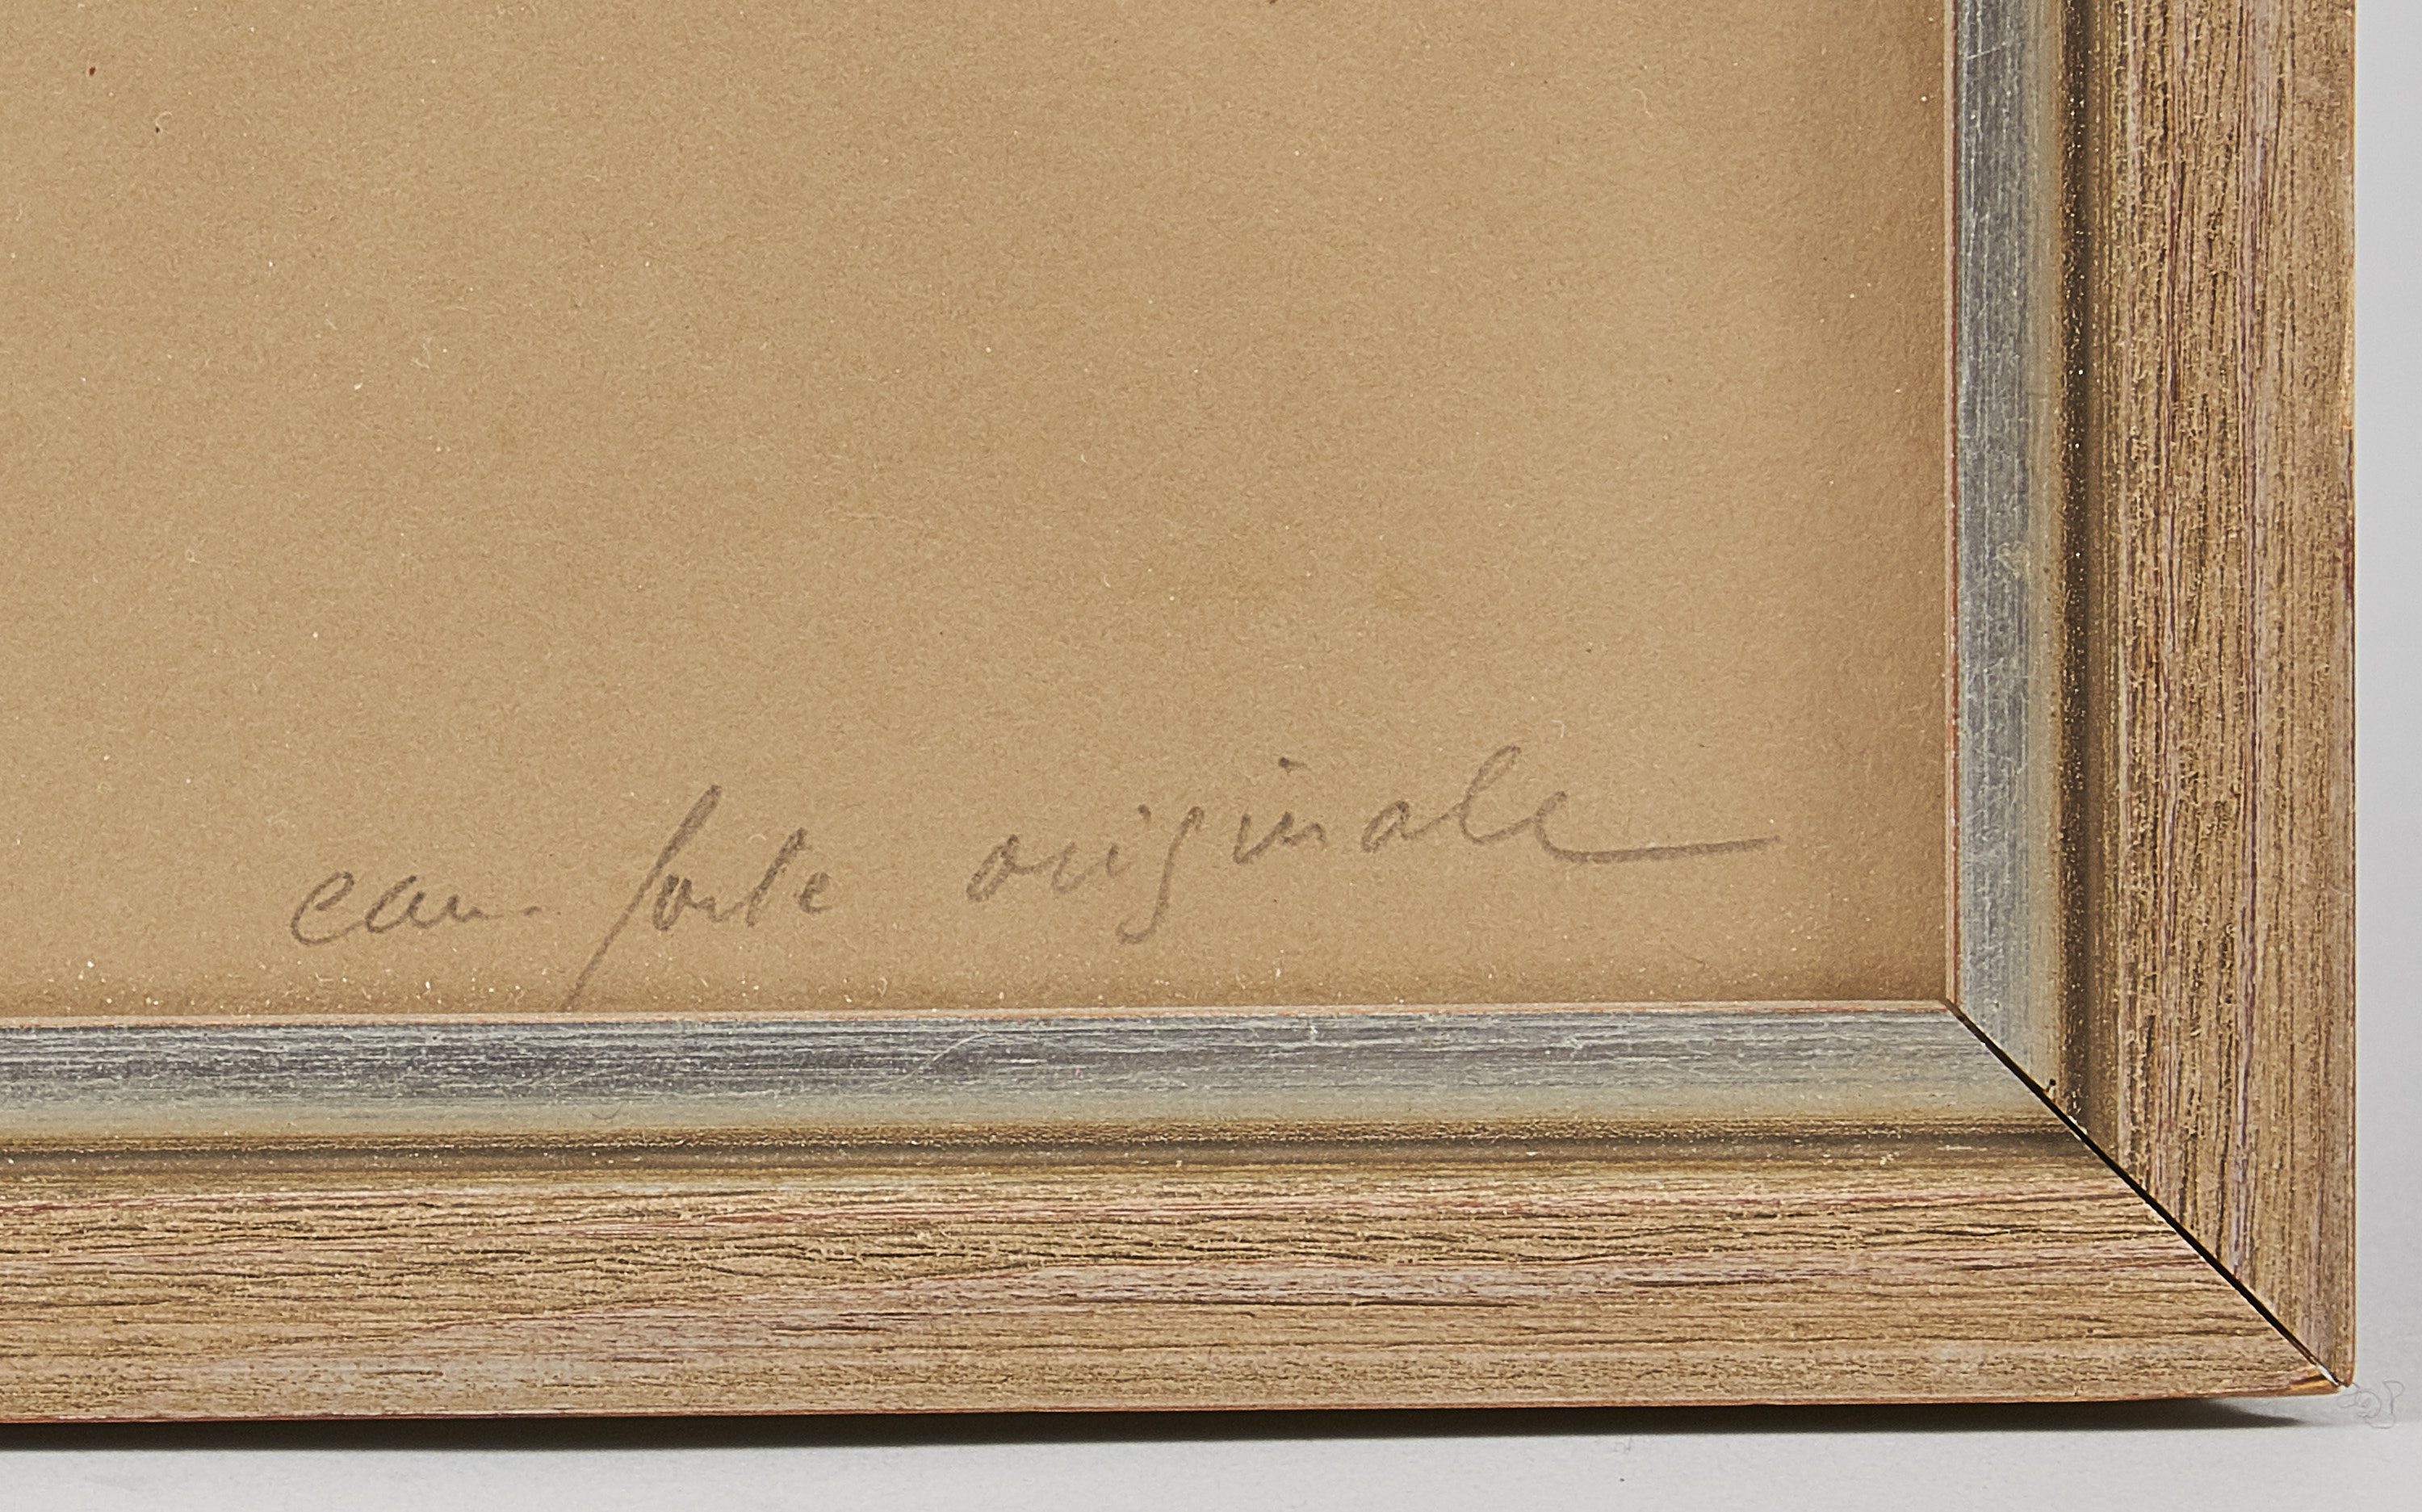 eau-forte originale